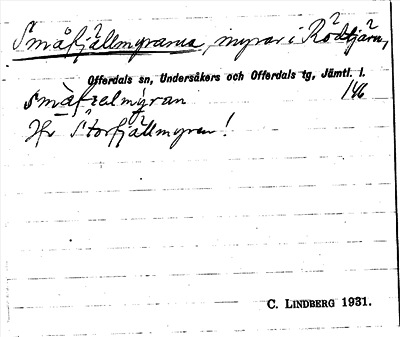 Småfjällmyrarna, myrar i Rödtjärn,
Offerdals sn, Undersåkers och Offerdals tg, Jämtl. l.
småfzelmýran 146
Jfr Storfjällmyren!
C. LINDBERG 1931.